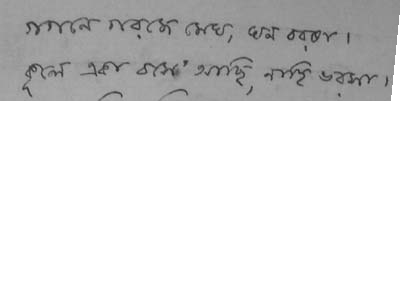 গগনে গরজে মেঘ, ঘন বরষা।
কূলে একা বসে' আছি, নাহি ভরসা।